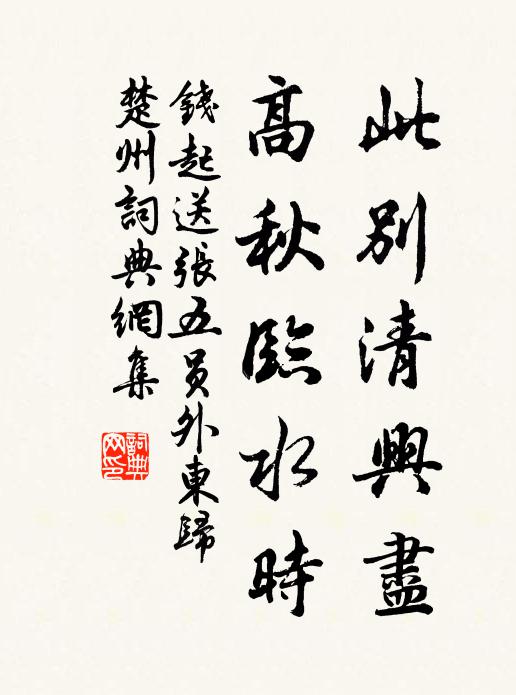 此別清興盡
高秋臨水時
錢起送張五員外東歸
楚州詞典網集
詞典網印